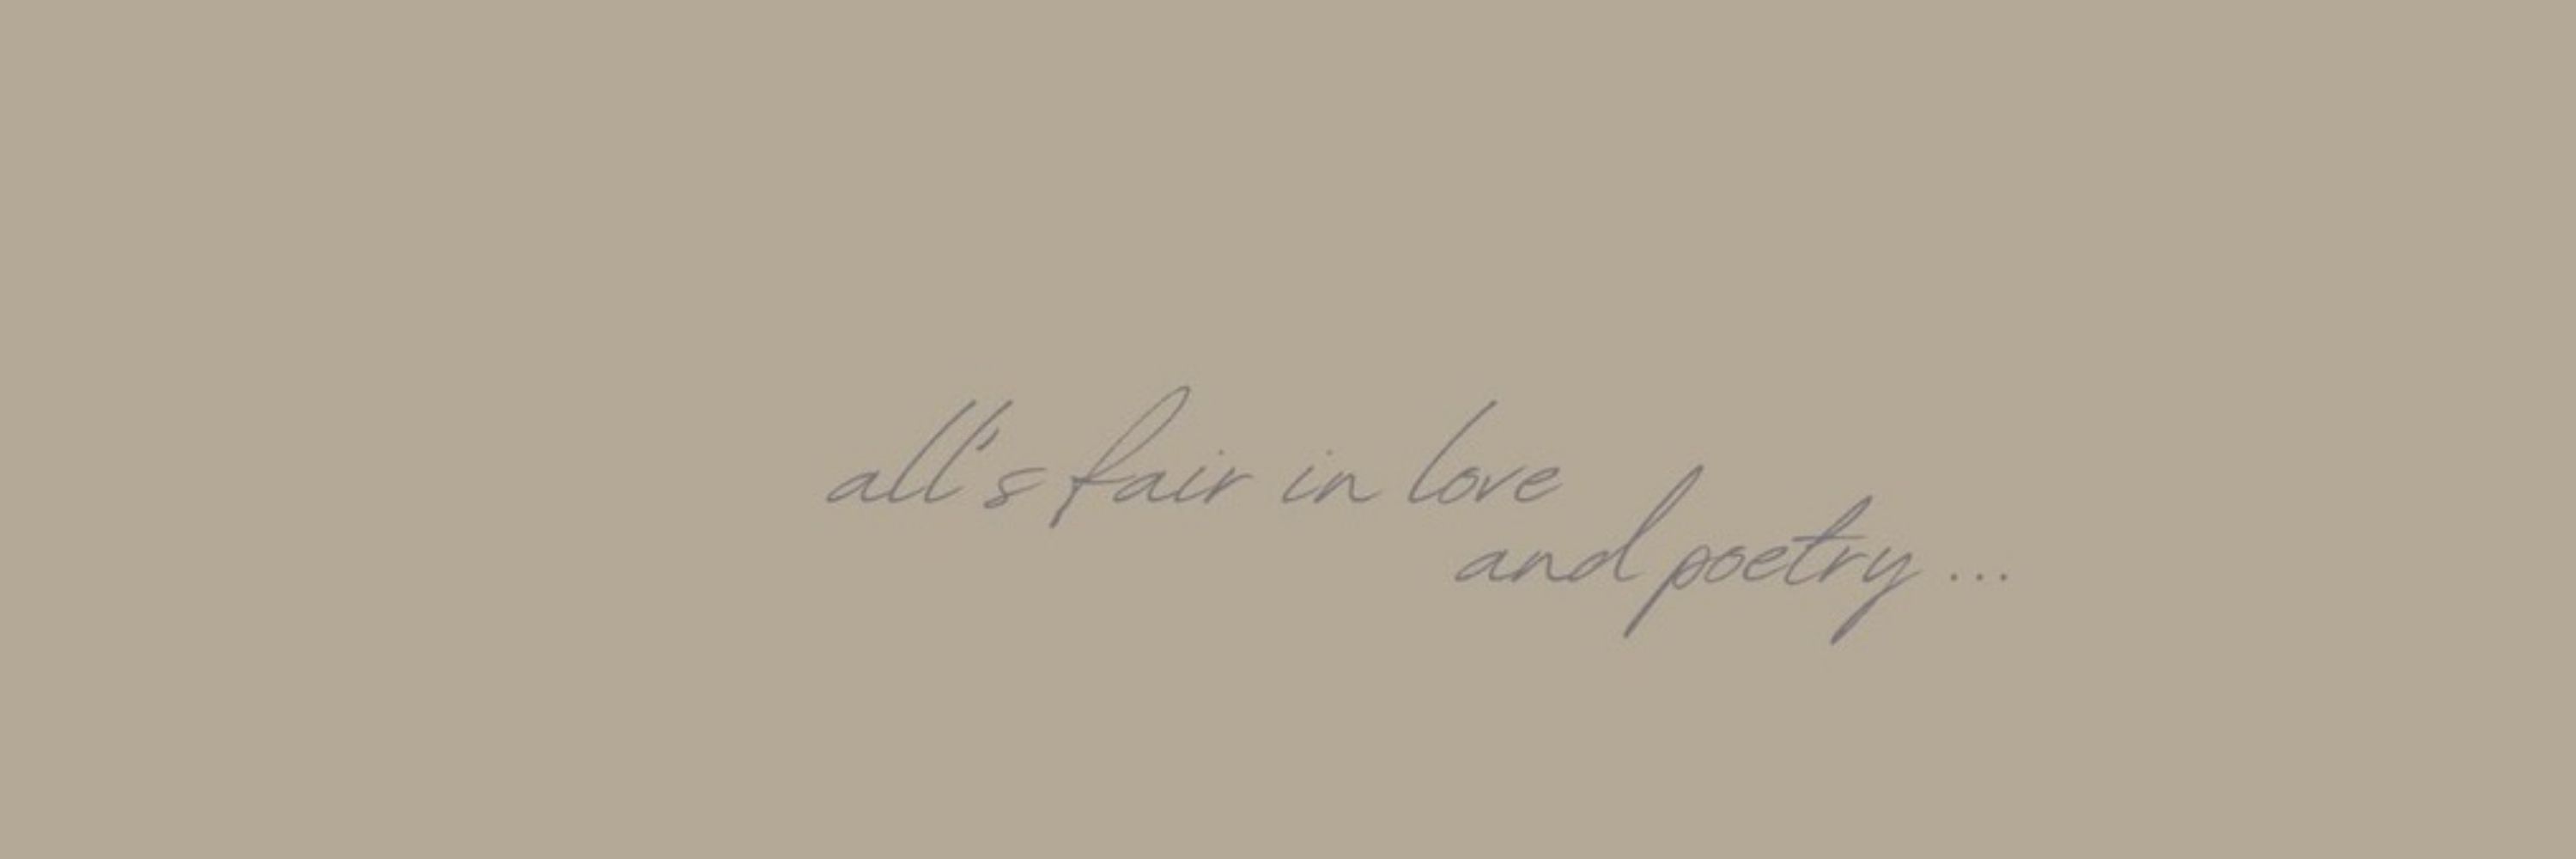 all's fair in love
and poetry...